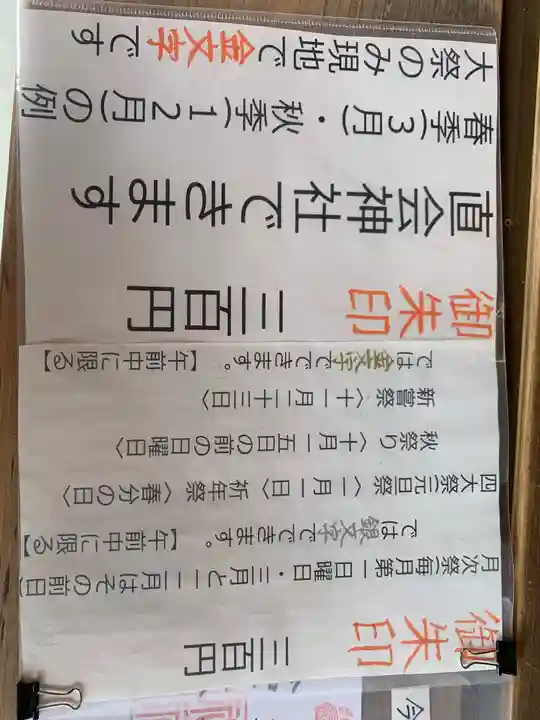 御朱印 三百円
月次祭(毎月第一日曜日・三月と一二月はその前日)
では銀文字でできます。【午前中に限る】
四大祭(元旦祭〈一月一日〉祈年祭〈春分の日〉
秋祭り〈十月一五日の前の日曜日〉
新嘗祭〈十一月二十三日〉
では金文字でできます。【午前中に限る】
御朱印 三百円
直会神社でできます
春季(3月)・秋季(12月)の例
大祭のみ現地で金文字です
今